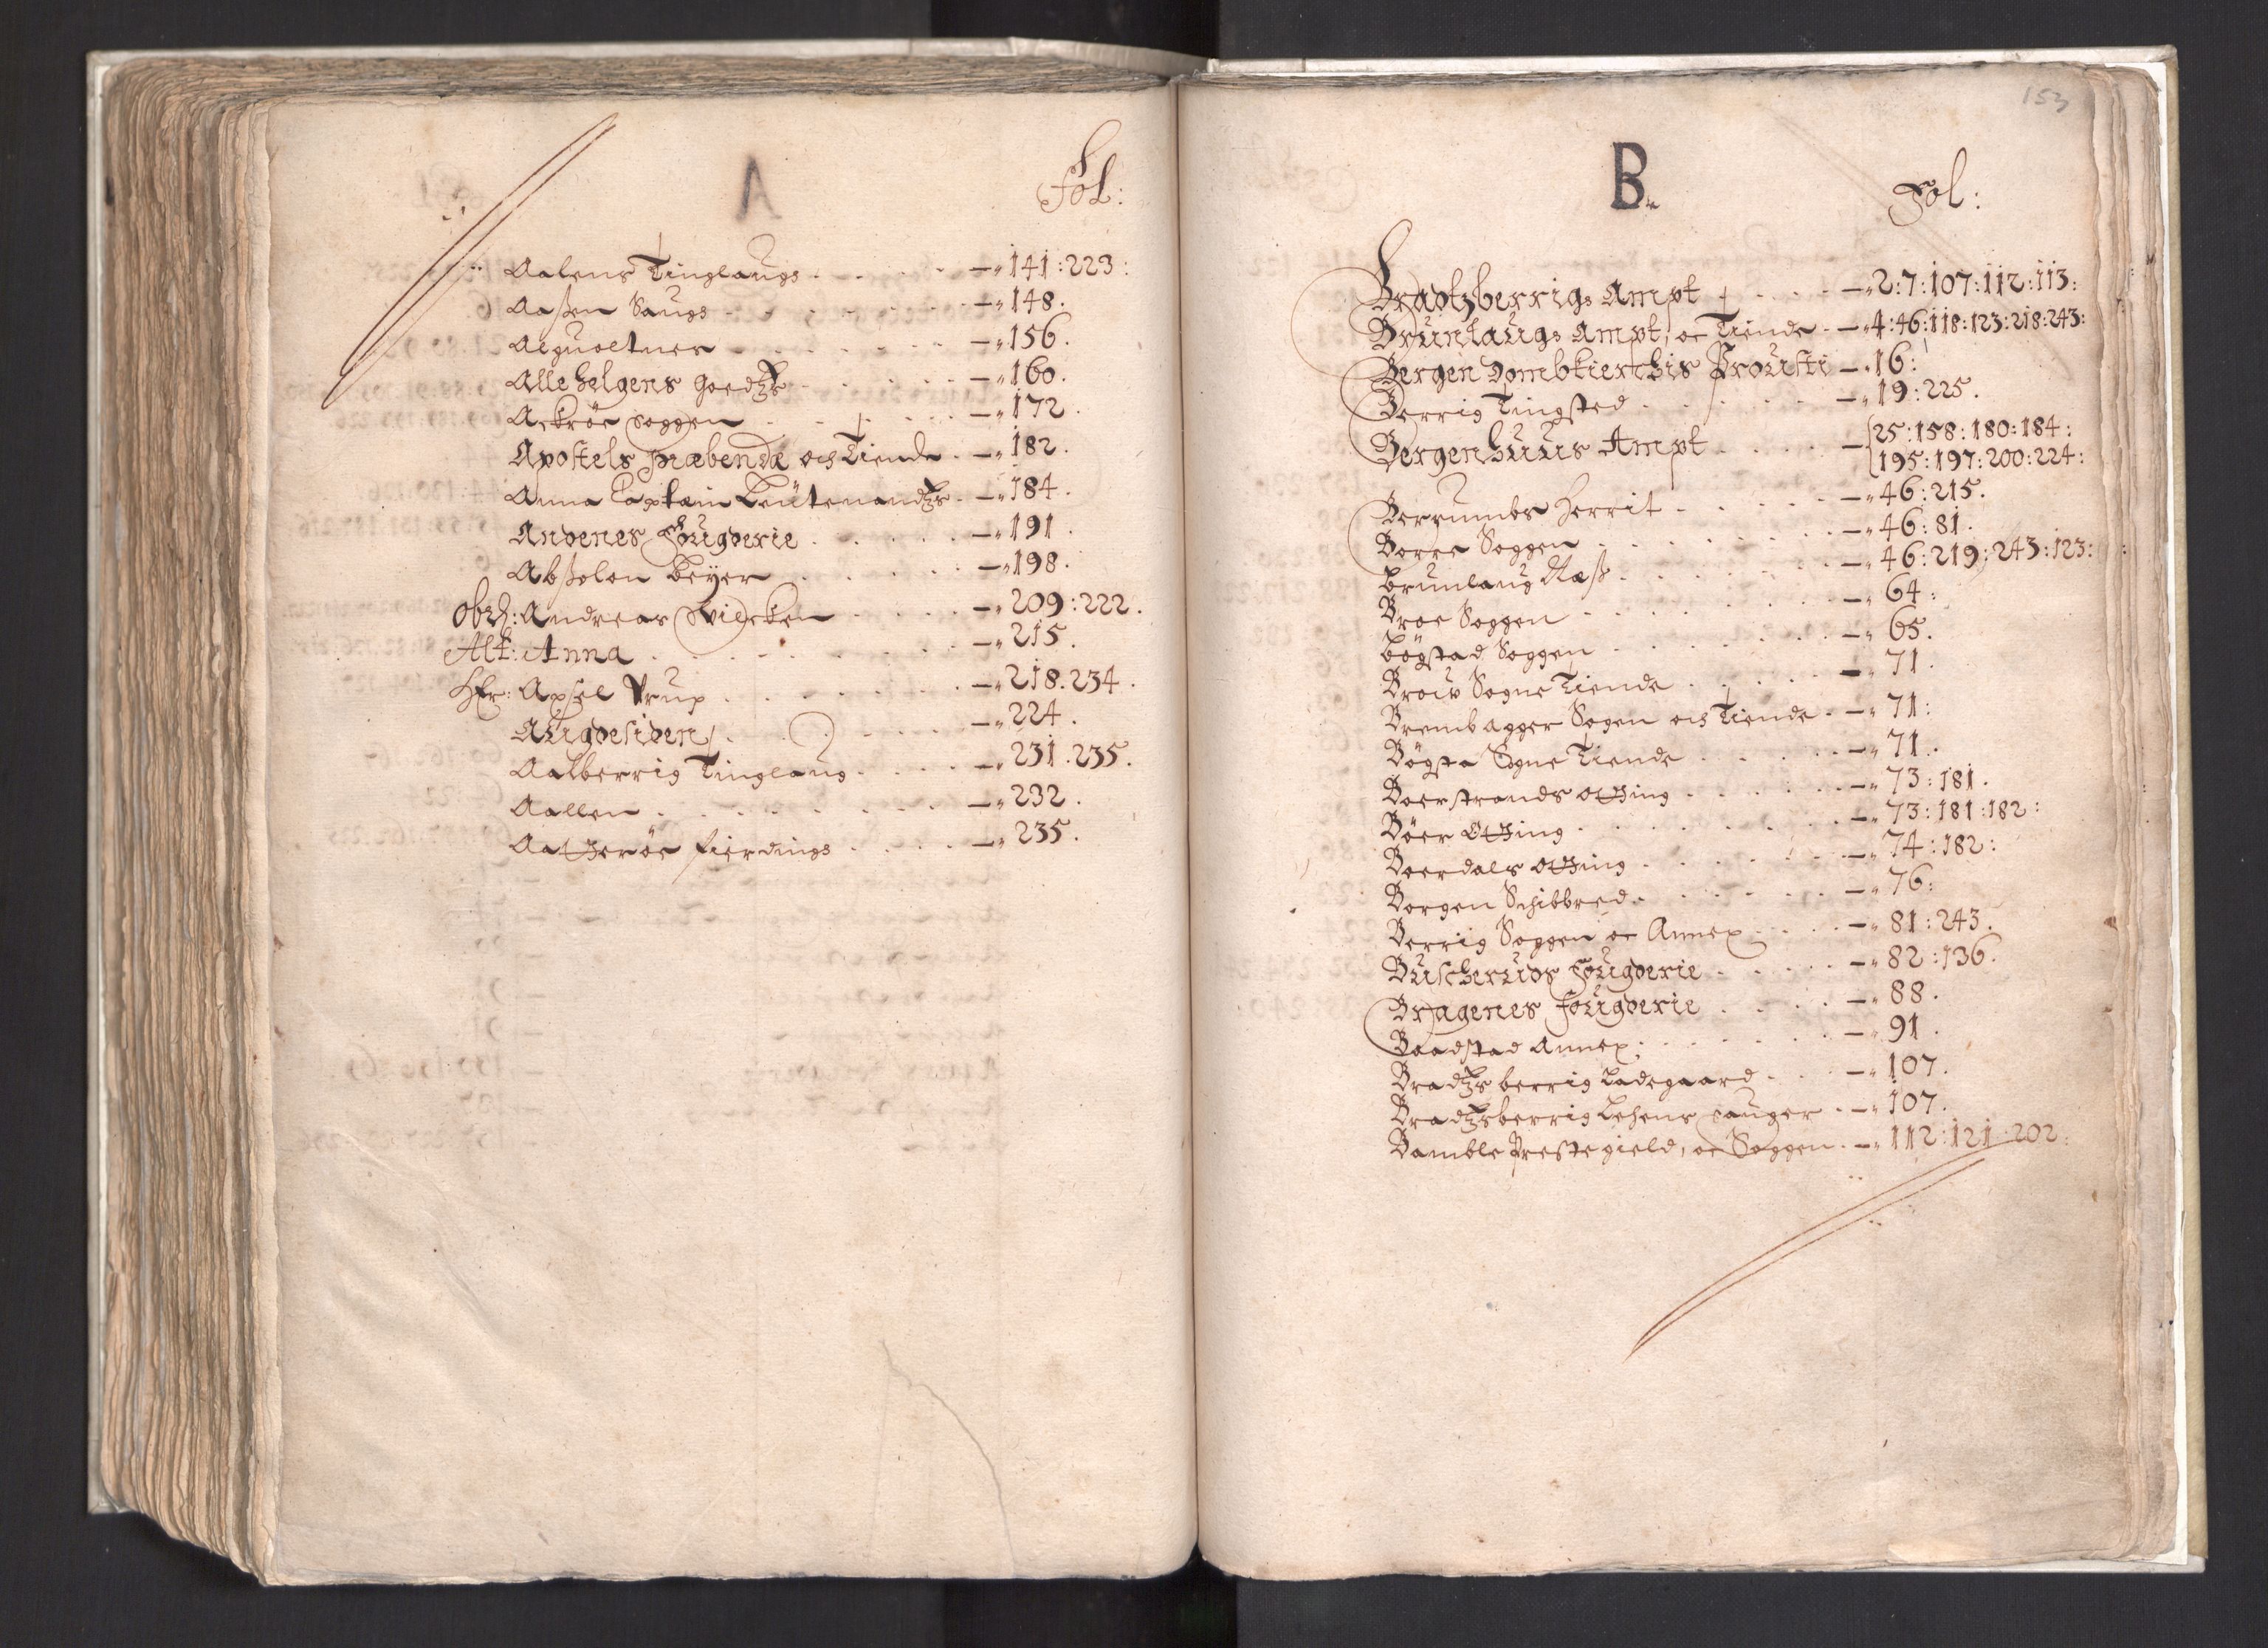 A
Fol:
Aalens Tinglaugs - - - - -„ 141:223:
Aaßen Saugs - - - - - -„ 148.
Aeguoltner - - - - - -„ 156.
Alle helgens Goedtzs - - - - -„ 160.
Ackröe soggen - - - - -„ 172.
Apostels præbende och Tiende - -„ 182.
Anna Captain Leütenandtzs - -„ 184.
Andenes Fougderie - - - - -„ 191.
Abßolon Beyer - - - - -„ 198.
Obr: Andreas Wilcken - - - -„ 209:222.
Alt: Anna - - - - - - -„ 215.
Hr: Axsel Vrup - - - - -„ 218.234.
Augdesiden - - - - - -„ 224.
Aalberrig Tinglaug - - - -„ 231.235.
Aallen - - - - - - -„ 232.
Aattzeröe fierdings - - - -„ 235.
153
B.
Fol:
Bradtzberrigs Ampt - - - -„ 2:7:107:112:113:
Brunlaugs Ampt, oc Tiende - -„ 4:46:118:123:218:243:
Bergen Dombkierchis Prousti -„ 16:
Berrig Tingsted - - - - - -„ 19:225.
Bergenhuus Ampt - - - - - 25:158:180:184:
195:197:200:224:
Berrumbs Herrit - - - - -„ 46:215.
Borre Soggen - - - - - -„ 46:81.
Brunlaug Næß - - - - - -„ 46:219:243:123:
Broe Soggen - - - - - -„ 64:
Bögstad Soggen - - - - - -„ 65.
Broür Sogne Tiende - - - - -„ 71.
Brembagger Sogen och Tiende - -„ 71:
Bögsta Sogne Tiende - - - - -„ 71.
Boerstrands otting - - - - -„ 73:181.
Böer Otting - - - - - -„ 73:181:182:
Boerdals otting - - - - - -„ 74:182:
Borgen Schibbred - - - - - -„ 76:
Berrig Soggen oc Annex - - - -„ 81:243.
Buscheruds Fougderie - - - - -„ 82:136.
Bragenes Fougderie - - - - -„ 88.
Baadstad Annex: - - - - - -„ 91.
Bradtzsberrig Ladegaard - - - -„ 107.
Bradtzsberrig Lehens sauger - -„ 107.
Bamble Prestegield, oc Soggen - -„ 112:121:202: